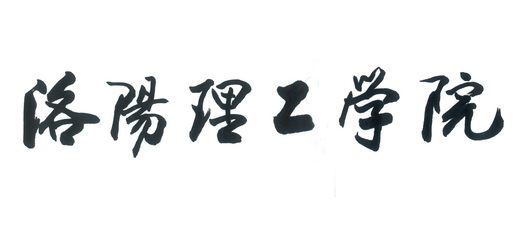 洛陽理工学院